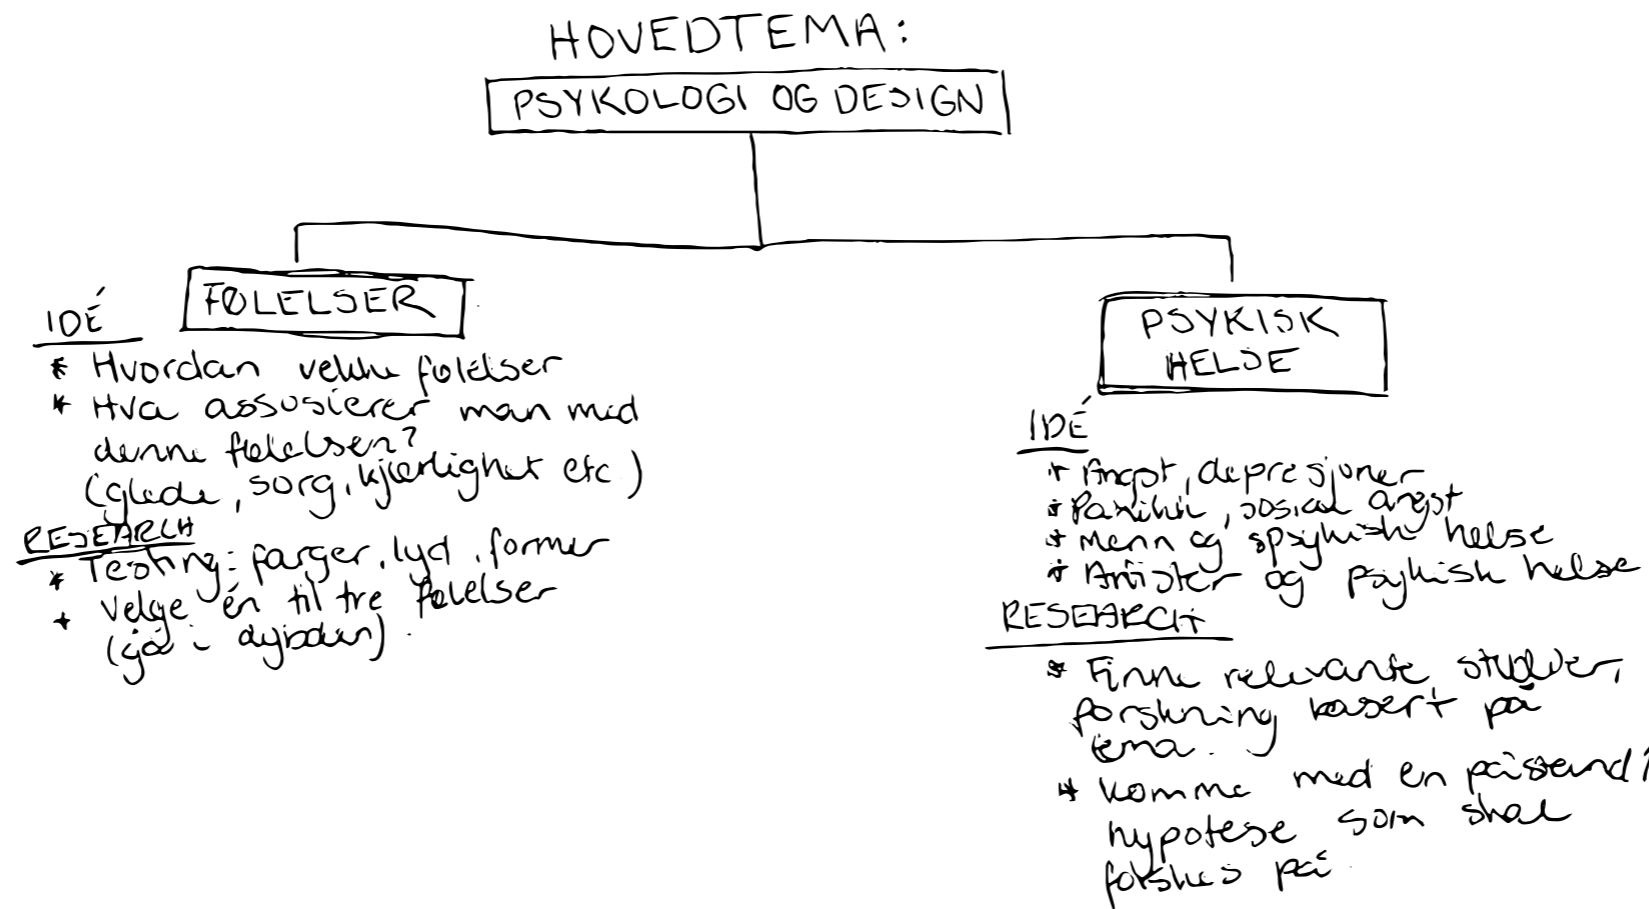 HOVEDTEMA:
PSYKOLOGI OG DESIGN
FØLELSER
IDÉ
* Hvordan vekke følelser
* Hva assosierer man med
denne følelsen?
(glede, sorg, kjærlighet etc)
RESEARCH
* Testing: farger, lyd, former
* Velge én til tre følelser
(gå i dybden).
PSYKISK
HELSE
IDÉ
* Angst, depresjoner
* Panikk, sosial angst
* Menn og spsykisk helse
* Artister og psykisk helse
RESEARCH
* Finne relevante studier,
forskning basert på
tema.
* Komme med en påstand/
hypotese som skal
forskes på.